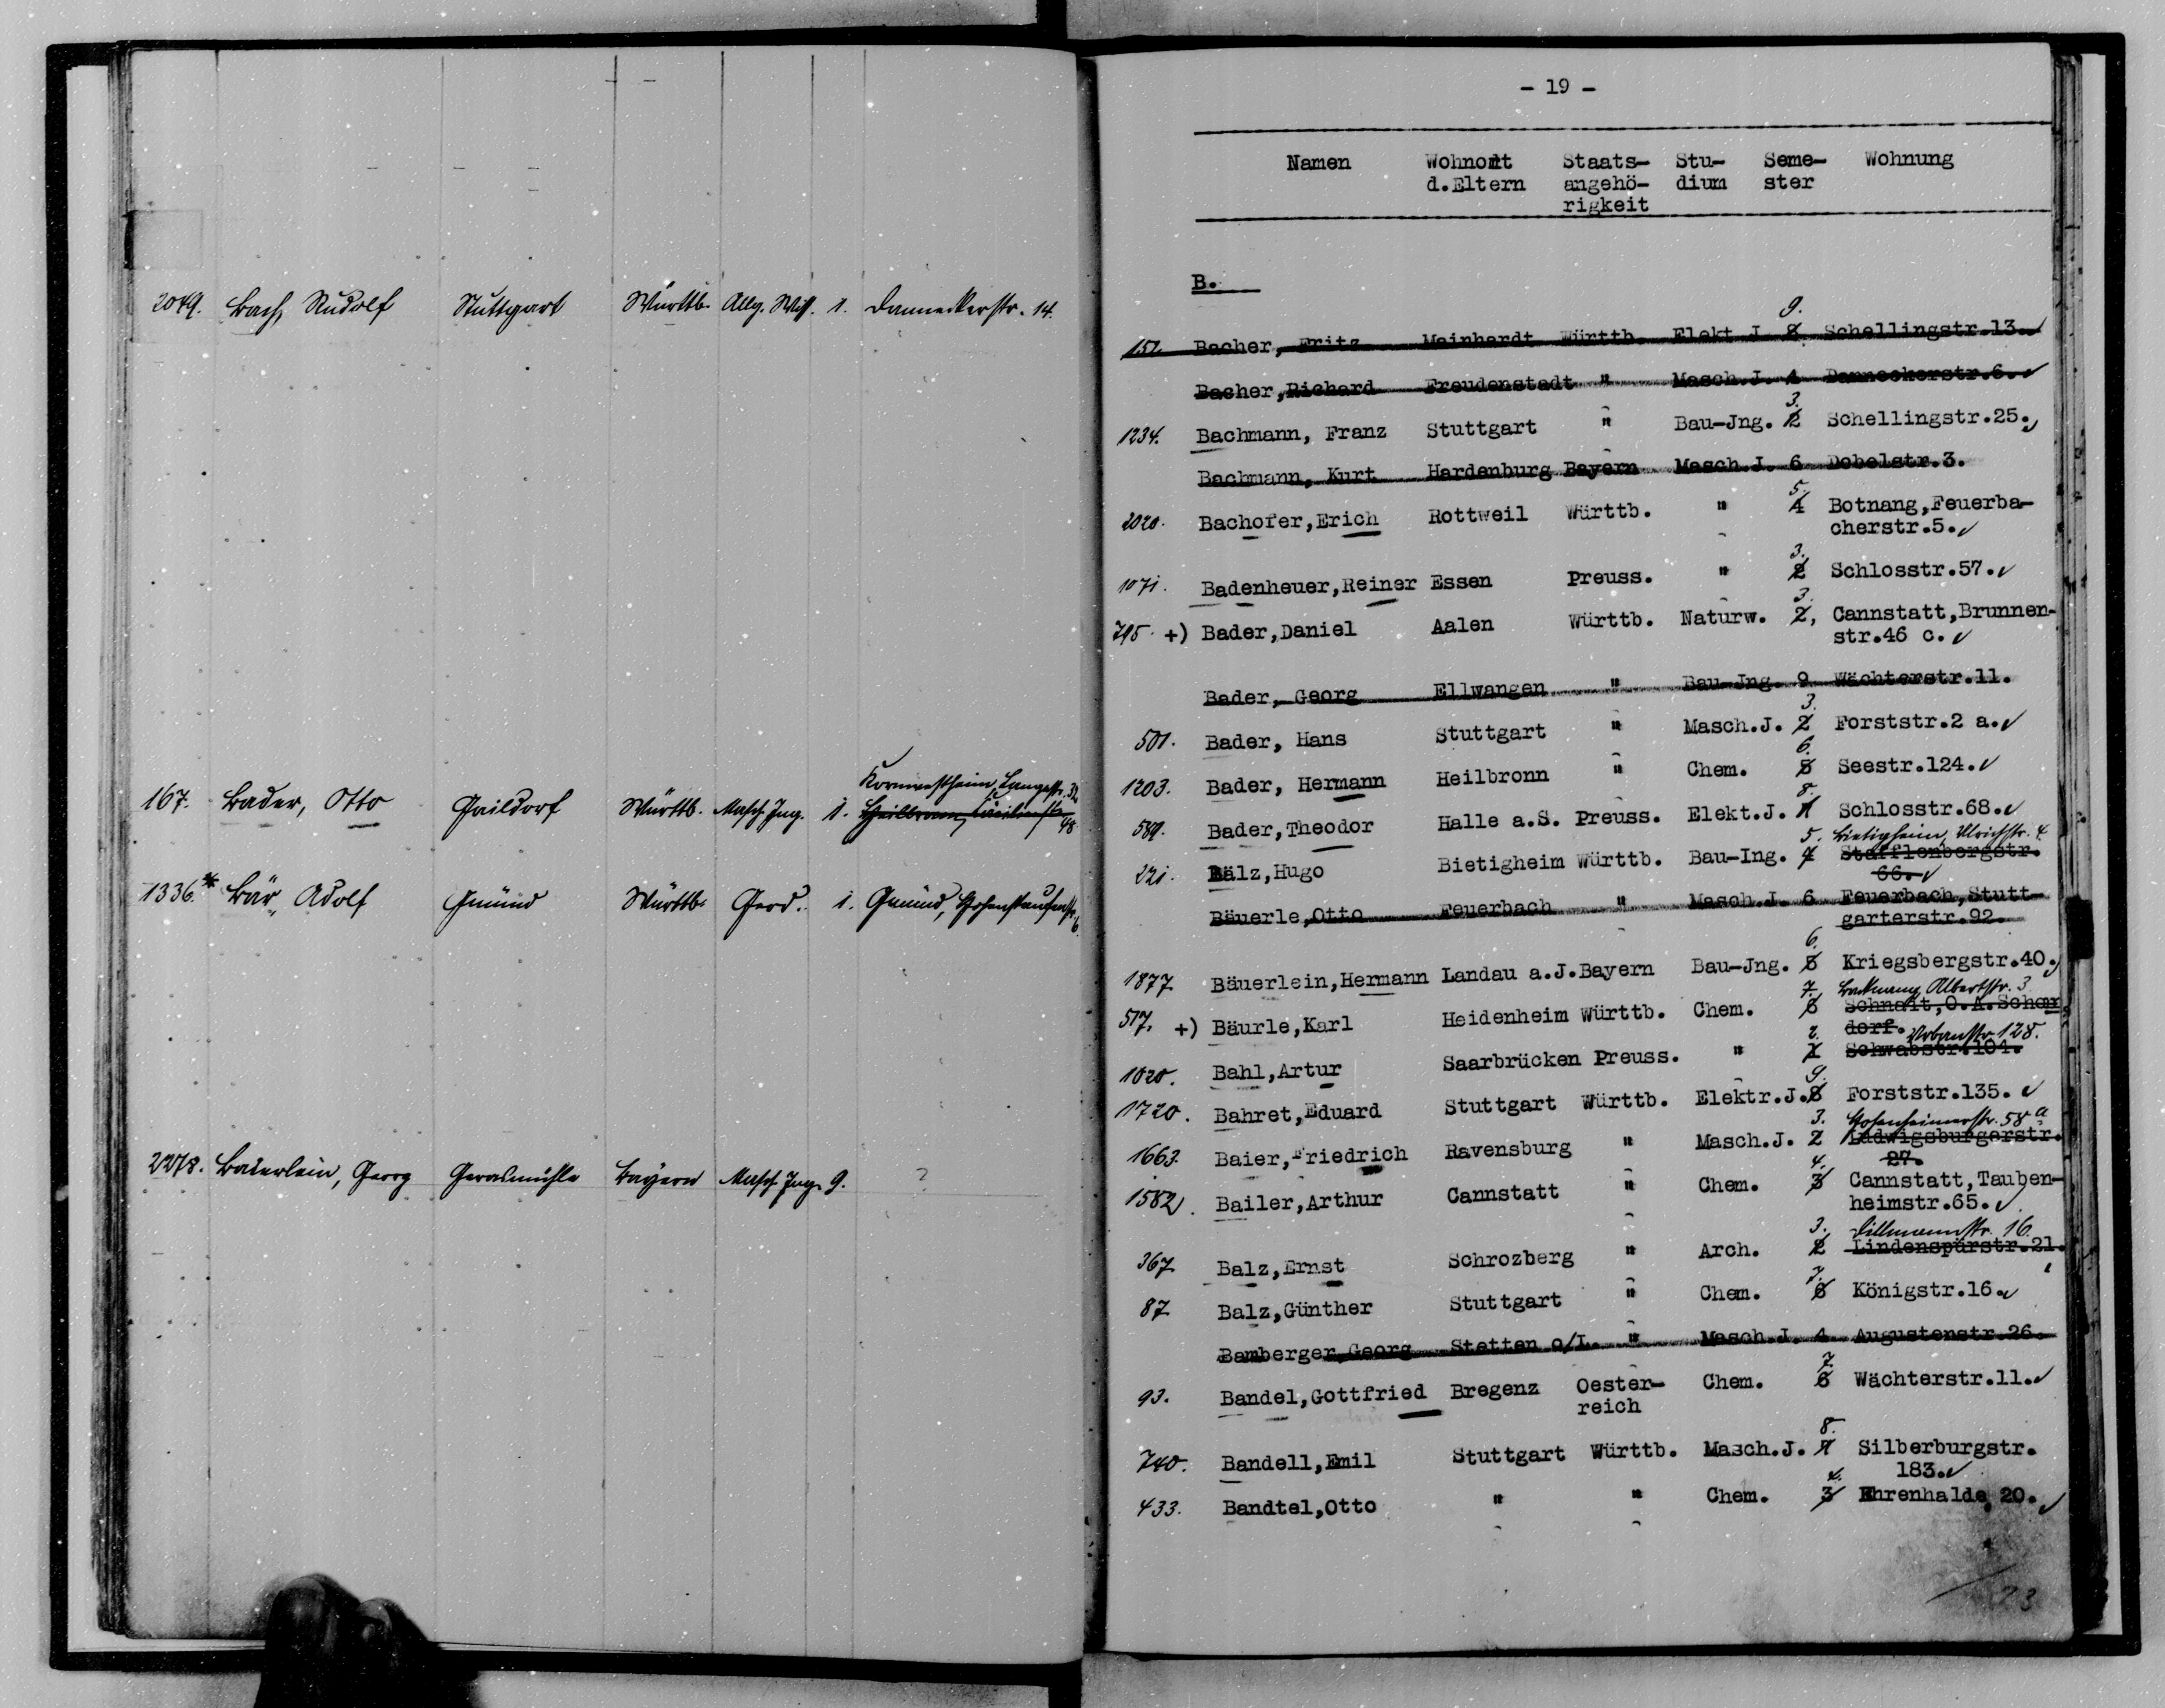 2049. Bach, Rudolf Stuttgart Württb. Allg. Wiss. 1. Danneckerstr. 14.
Kornwestheim, Langestr. 32
167. Bader, Otto Gaildorf Württb. Masch. Ing. 1. Heilbronn,
48
1336.* Bär, Adolf Gmünd Württb. Geod. 1. Gmünd, Hohenstaufenstr.
6.
2278. Bäuerlein, Georg Gerasmühle Bayern Masch. Ing. 9. ?
- 19 -
Namen Wohnort Staats- Stu- Seme- Wohnung
d.Eltern angehö- dium ster
rigkeit
B.
9.
151. Bacher, Fritz Mainhardt Württb. Elekt.J. 8 Schellingstr.13.
Bacher,Richard Freudenstadt " Masch.J. 4 Danneckerstr.6.
3.
1234. Bachmann, Franz Stuttgart " Bau-Jng. 2 Schellingstr.25.
Bachmann, Kurt Hardenburg Bayern Masch.J. 6 Dobelstr.3.
5.
2020. Bachofer,Erich Rottweil Württb. " 4 Botnang,Feuerba-
cherstr.5.
3.
1071. Badenheuer,Reiner Essen Preuss. " 2 Schlosstr.57.
3.
795. +) Bader,Daniel Aalen Württb. Naturw. 2, Cannstatt,Brunnen-
str.46 c.
Bader, Georg Ellwangen " Bau-Jng. 9 Wächterstr.11.
3.
501. Bader, Hans Stuttgart " Masch.J. 2 Forststr.2 a.
6.
1203. Bader, Hermann Heilbronn " Chem. 5 Seestr.124.
8.
589. Bader,Theodor Halle a.S. Preuss. Elekt.J. 7 Schlosstr.68.
5. Bietigheim, Ulrichstr. 4
221. Bälz,Hugo Bietigheim Württb. Bau-Ing. 4 Stafflenbergstr.
66.
Bäuerle,Otto Feuerbach " Masch.J. 6 Feuerbach,Stutt-
garterstr.92.
6.
1877. Bäuerlein,Hermann Landau a.J.Bayern Bau-Jng. 5 Kriegsbergstr.40.
7. Backnang, Albertstr. 3
517. +) Bäurle,Karl Heidenheim Württb. Chem. 6 Schnait,O.A.Schorn
dorf.
2. Urbanstr. 128.
1020. Bahl,Artur Saarbrücken Preuss. " 1 Schwabstr.104.
9.
1720. Bahret,Eduard Stuttgart Württb. Elektr.J.8 Forststr.135.
3. Hohenheimerstr. 58 a
1663. Baier,Friedrich Ravensburg " Masch.J. 2 Ludwigsburgerstr.
27.
4.
1582. Bailer,Arthur Cannstatt " Chem. 3 Cannstatt,Tauben-
heimstr.65.
3. Dillmannstr. 16.
367. Balz,Ernst Schrozberg " Arch. 2 Lindenspürstr.21.
7.
87. Balz,Günther Stuttgart " Chem. 6 Königstr.16.
Bamberger,Georg Stetten o/L. " Masch.J. 4 Augustenstr.26.
7.
93. Bandel,Gottfried Bregenz Oester- Chem. 6 Wächterstr.11.
reich
8.
740. Bandell,Emil Stuttgart Württb. Masch.J. 7 Silberburgstr.
183.
4.
433. Bandtel,Otto " " Chem. 3 Ehrenhalde 20.
23